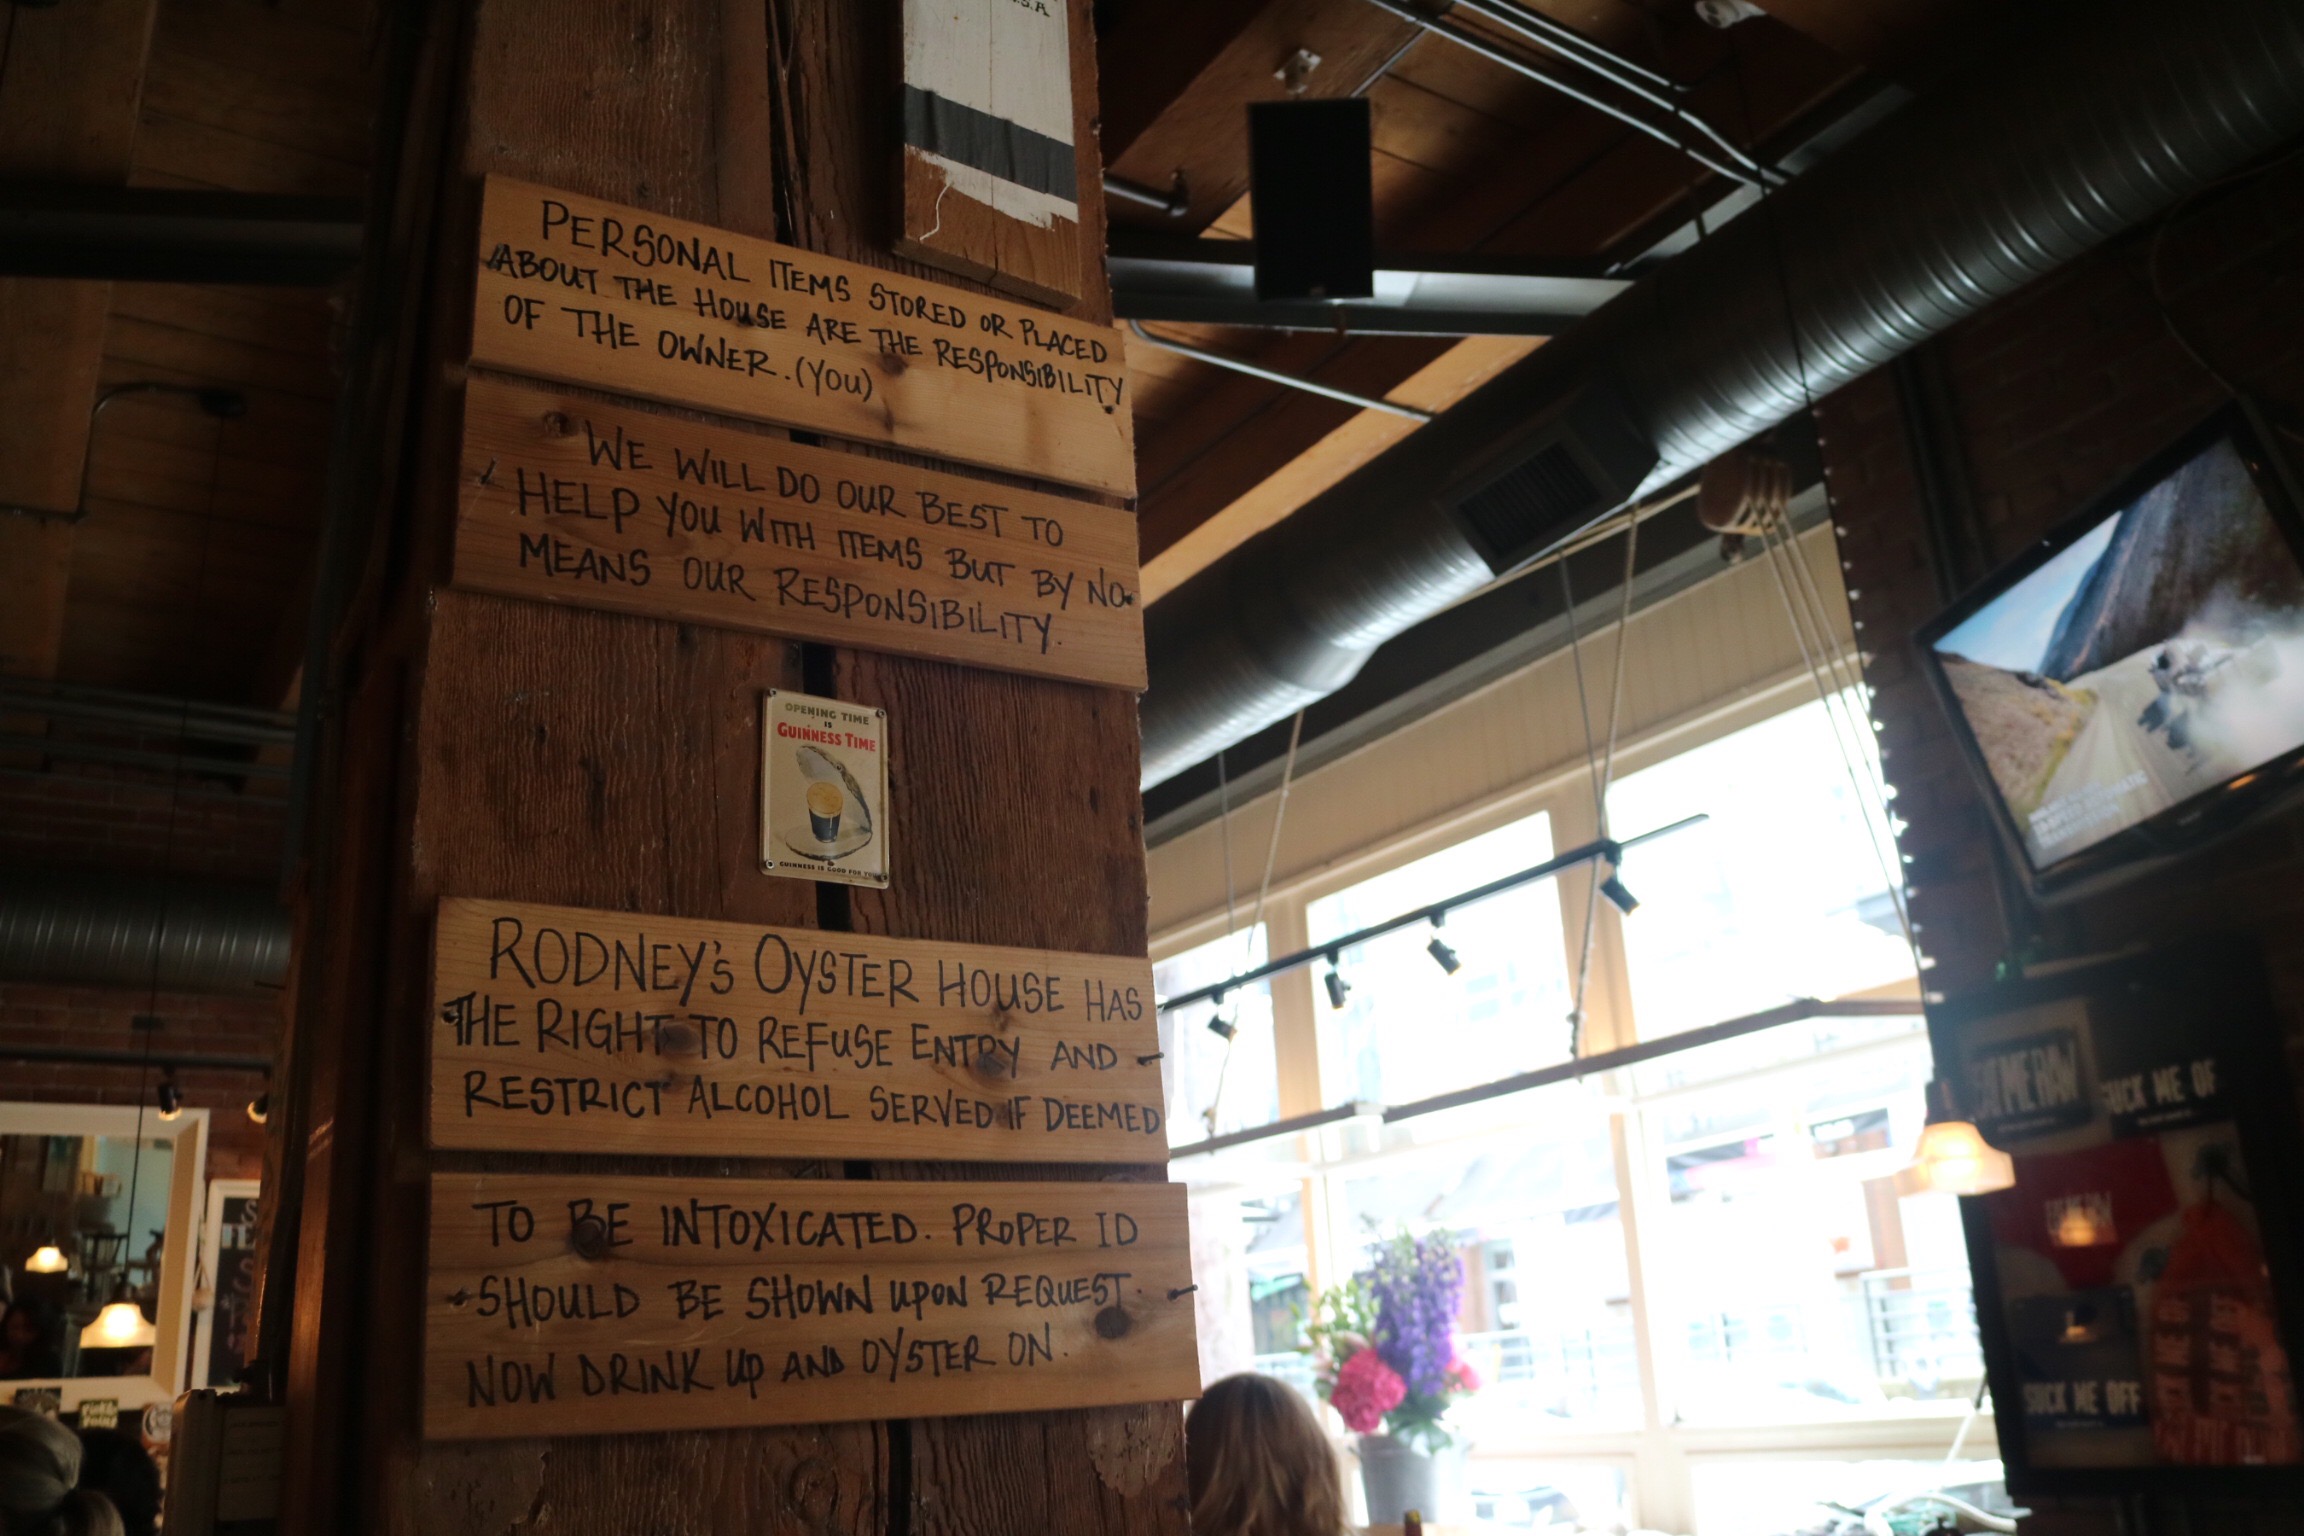 U.S.A
PERSONAL ITEMS STORED OR PLACED
ABOUT THE HOUSE ARE THE RESPONSIBILITY
OF THE OWNER. (YOU)
WE WILL DO OUR BEST TO
HELP YOU WITH ITEMS BUT BY NO
MEANS OUR RESPONSIBILITY.
OPENING TIME
IS
GUINNESS TIME
GUINNESS IS GOOD FOR YOU
RODNEY'S OYSTER HOUSE HAS
THE RIGHT TO REFUSE ENTRY AND
RESTRICT ALCOHOL SERVED IF DEEMED
TO BE INTOXICATED. PROPER ID
SHOULD BE SHOWN UPON REQUEST.
NOW DRINK UP AND OYSTER ON.
SUCK ME OF
SUCK ME OFF